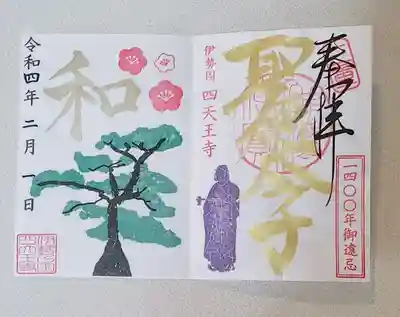 奉拝
一四〇〇年御遠忌
聖徳太子
伊勢国 四天王寺
和
令和四年 二月 一日